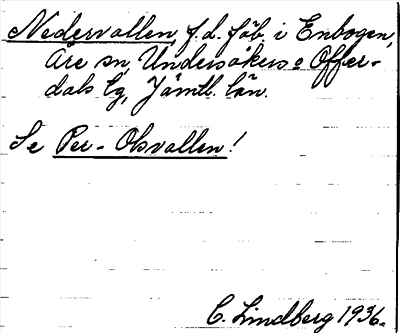 Nedervallen, f.d. fäb. i Enbogen,
Åre sn, Undersåkers o Offer-
dals tg, Jämtl. län.
Se Per-Olsvallen!
C. Lindberg 1936.